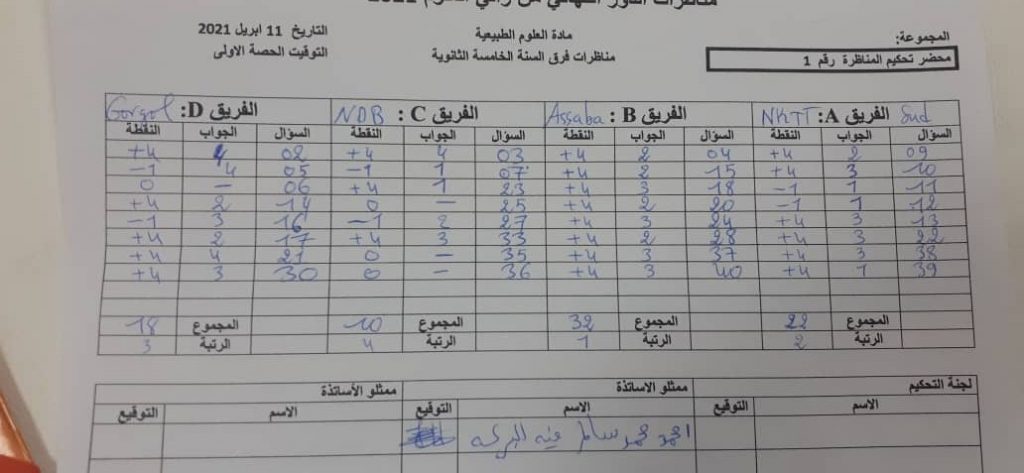 المجموعة:
محضر تحكيم المناظرة رقم 1
مادة العلوم الطبيعية
مناظرات فرق السنة الخامسة الثانوية
التاريخ 11 ابريل 2021
التوقيت الحصة الاولى
الفريق A: NKTT Sud الفريق B: Assaba الفريق C: NDB الفريق D: Gorgol
السؤال الجواب النقطة السؤال الجواب النقطة السؤال الجواب النقطة السؤال الجواب النقطة
09 2 +4 04 2 +4 03 4 +4 02 4 +4
10 3 +4 15 2 +4 07 1 -1 05 4 -1
11 1 -1 18 3 +4 23 1 +4 06 - 0
12 1 -1 20 2 +4 25 - 0 14 2 +4
13 3 +4 24 3 +4 27 2 -1 16 3 -1
22 3 +4 28 2 +4 33 3 +4 17 2 +4
38 3 +4 37 3 +4 35 - 0 21 4 +4
39 1 +4 40 3 +4 36 - 0 30 3 +4
المجموع 22 المجموع 32 المجموع 10 المجموع 18
الرتبة 2 الرتبة 1 الرتبة 4 الرتبة 3
لجنة التحكيم ممثلو الاساتذة ممثلو الأساتذة
الاسم التوقيع الاسم التوقيع الاسم التوقيع
احمد محمد سالم